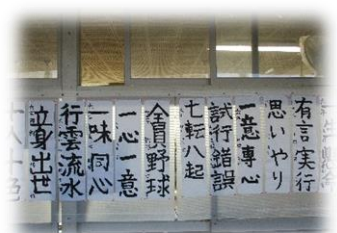 有言実行
思いやり
一意専心
試行錯誤
七転八起
全員野球
一心一意
一味同心
行雲流水
立身出世
十人十色